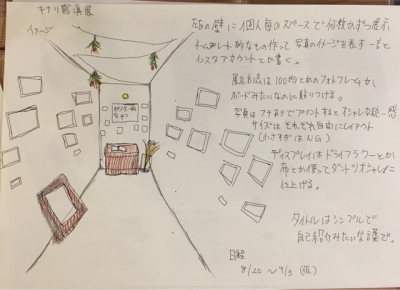 イメージ
左右の壁に1個人毎のスペースで何枚かずつ展示
ネームプレート的なもの作って写真のイメージを表す一言と
インスタアカウントとか書く。
展示方法は100均とかのフォトフレームか
ボードみたいなのに貼りつける。
写真はフチありでプリントするとオシャレな統一感
サイズはそれぞれ自由にレイアウト
(小さすぎはNG)
ディスプレイはドライフラワーとか
布とか使ってダントツオシャレに
仕上げる。
タイトルはシンプルで
自己紹介みたいな言語で。
日程
8/20 〜 9/3 (仮)